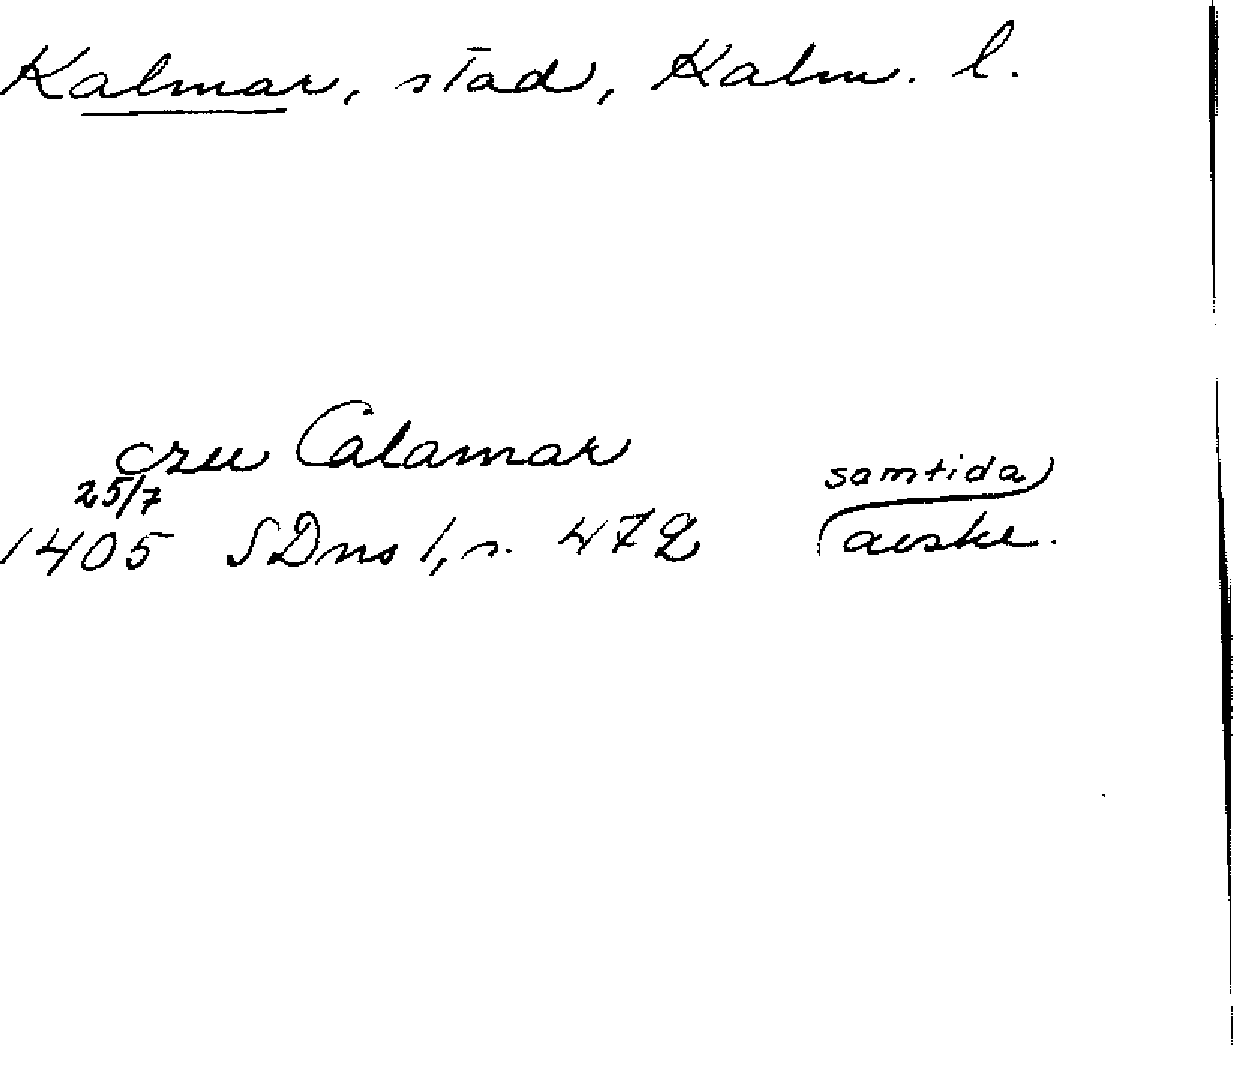 Kalmar, stad, Kalm. l.
czu Calamar
25/7
samtida
1405 SDns 1, s. 472 avskr.